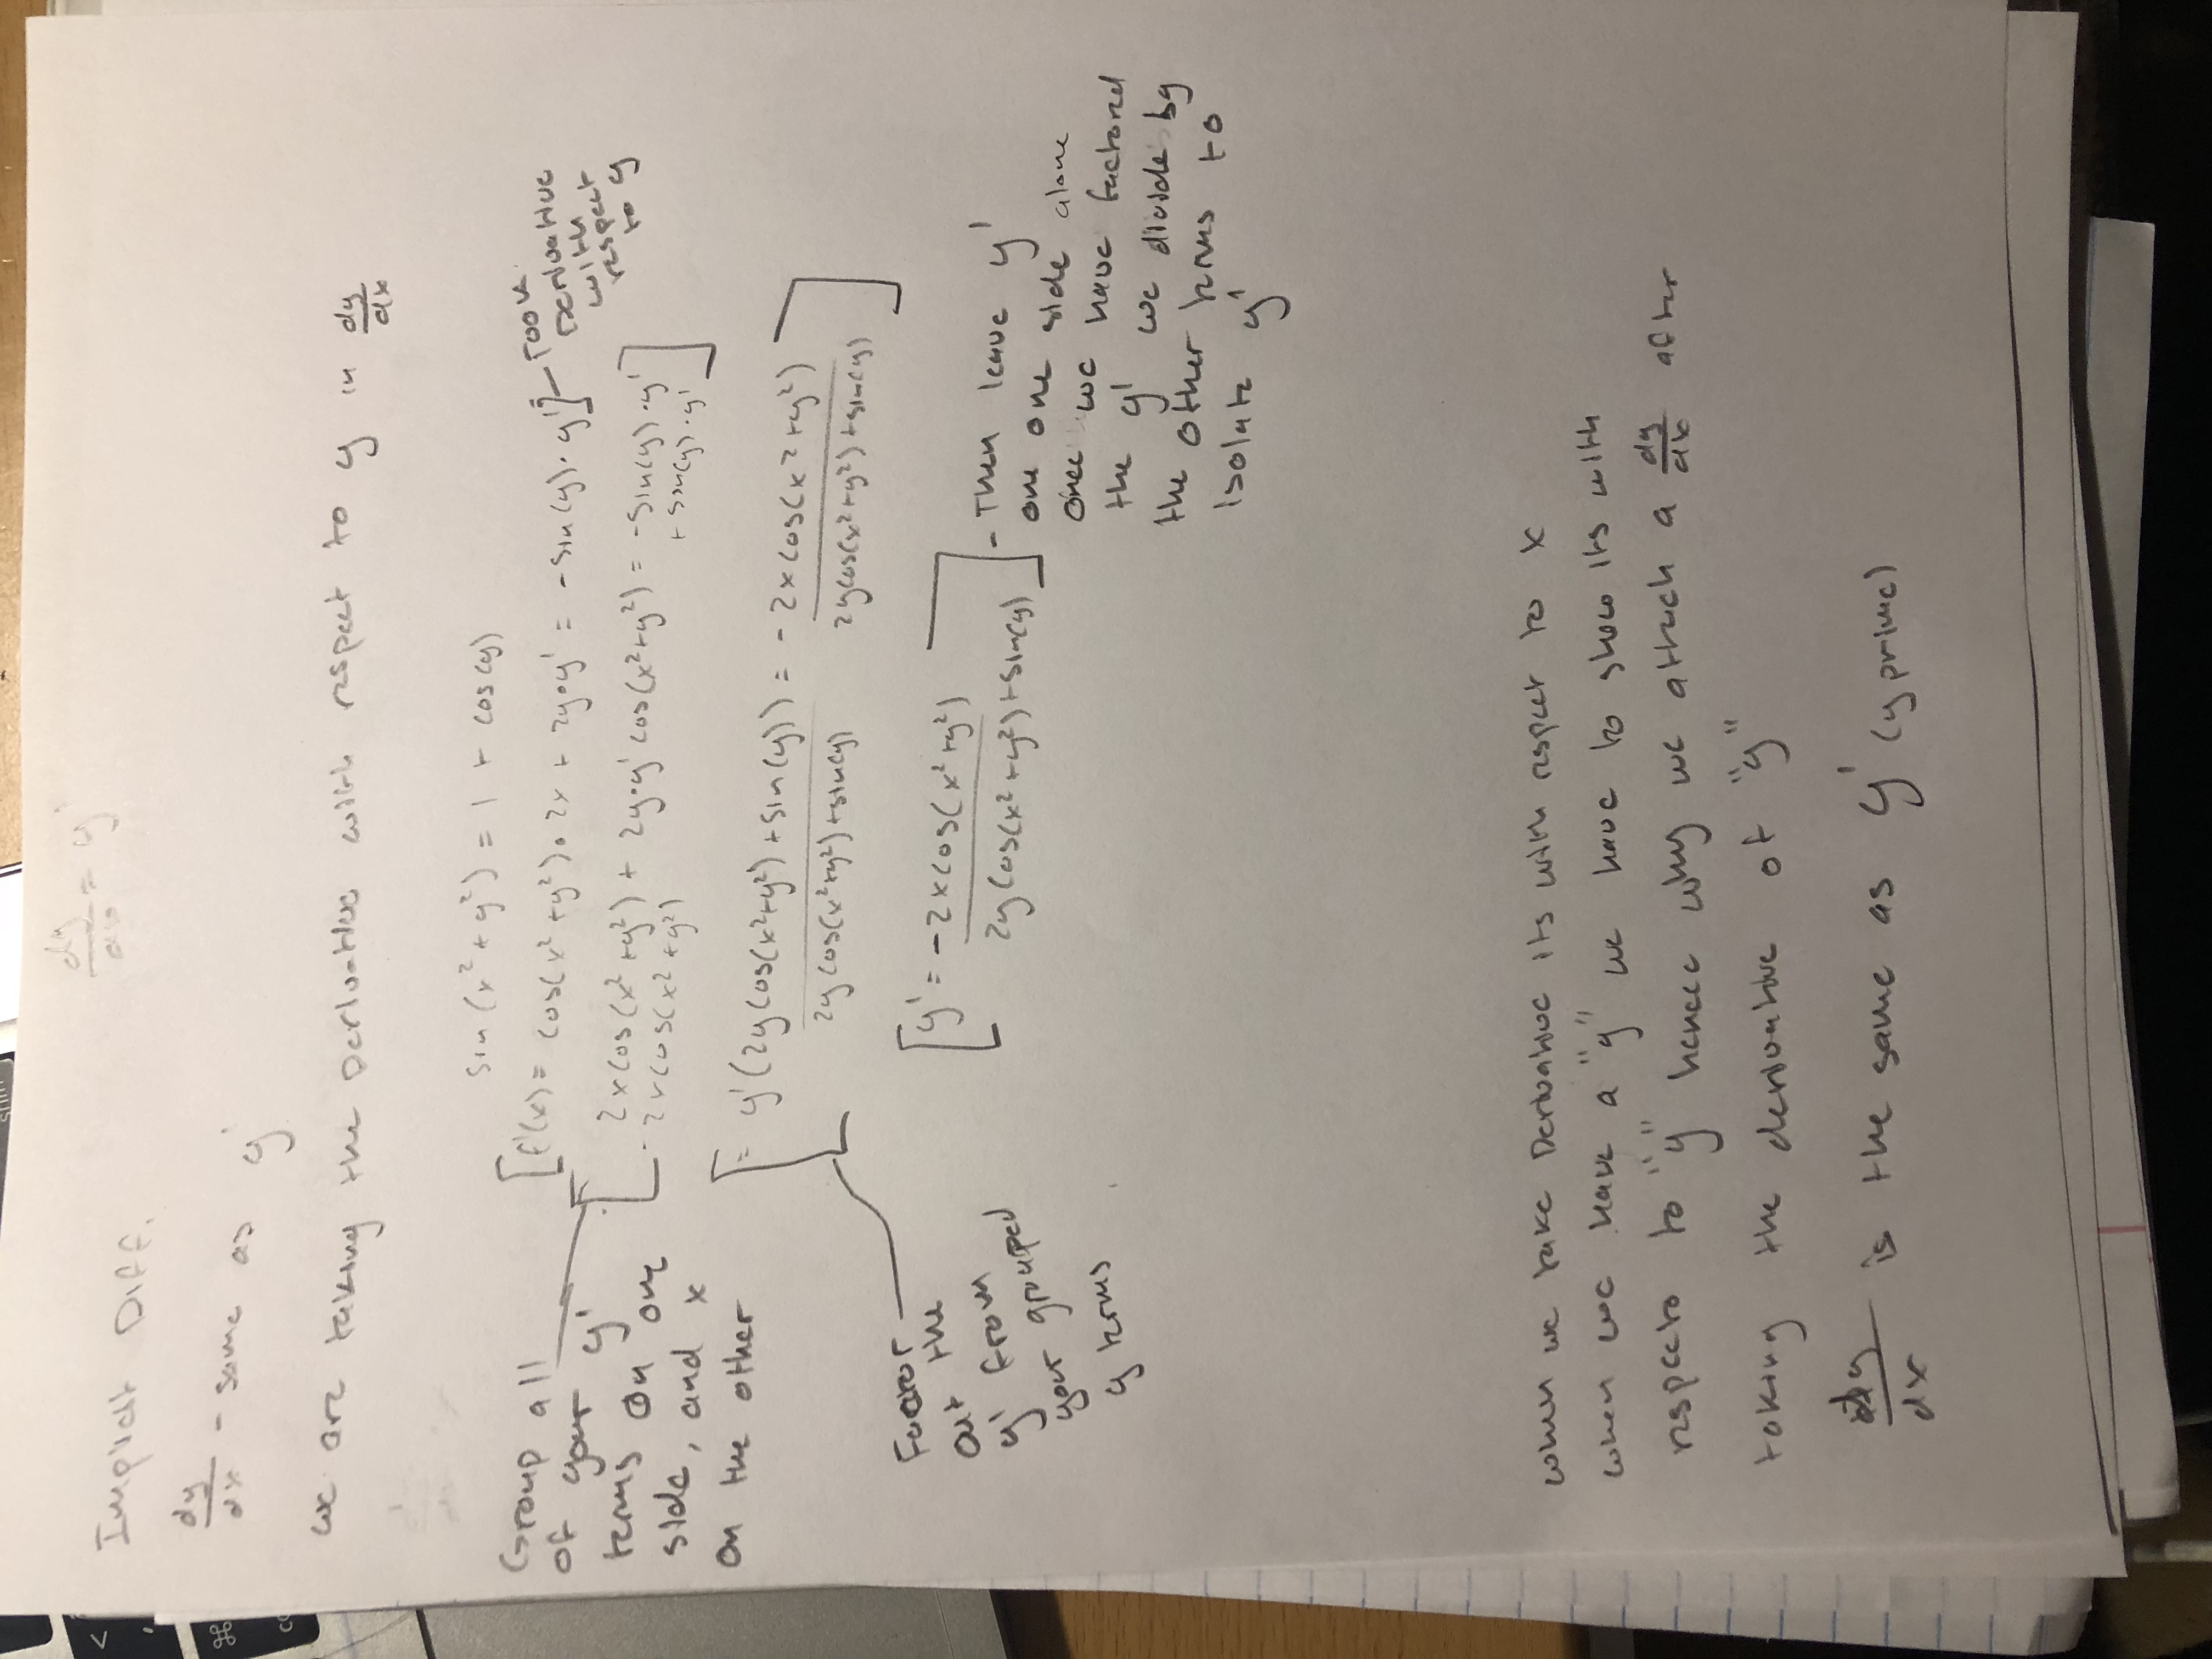 dy/dx = y'
Implicit Diff.
dy/dx - same as y'
we are taking the Derivative with respect to y in dy/dx
sin (x² + y²) = 1 + cos(y)
[f'(x) = cos(x² + y²) · 2x + 2y·y' = -sin(y) · y']
Took
Derivative
with
respect
to y
Group all
of your y'
terms on one
side, and x
on the other
2xcos(x² + y²) + 2y·y' cos(x² + y²) = -sin(y) · y'
- 2xcos(x² + y²) + sin(y) · y'
= y'(2y cos(x²+y²) + sin(y)) = - 2x cos(x² + y²)
2y cos(x²+y²) + sin(y) 2y cos(x²+y²) + sin(y)
Factor
out the
y' from
your grouped
y terms
y' = -2x cos(x² + y²)
2y cos(x² + y²) + sin(y)
- Then leave y'
one one side alone
once we have factored
the y' we divide by
the other terms to
isolate y'
when we take Derivative its with respect to x
when we have a "y" we have to show its with
respecto to "y" hence why we attach a dy/dx after
taking the derivative of "y"
dy/dx is the same as y' (y prime)